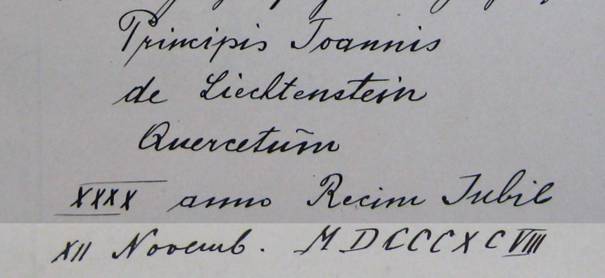 Principis Joannis
de Liechtenstein
Quercetūm
XXXX anno Recim Jubil
XII Novemb. MDCCCXCVIII